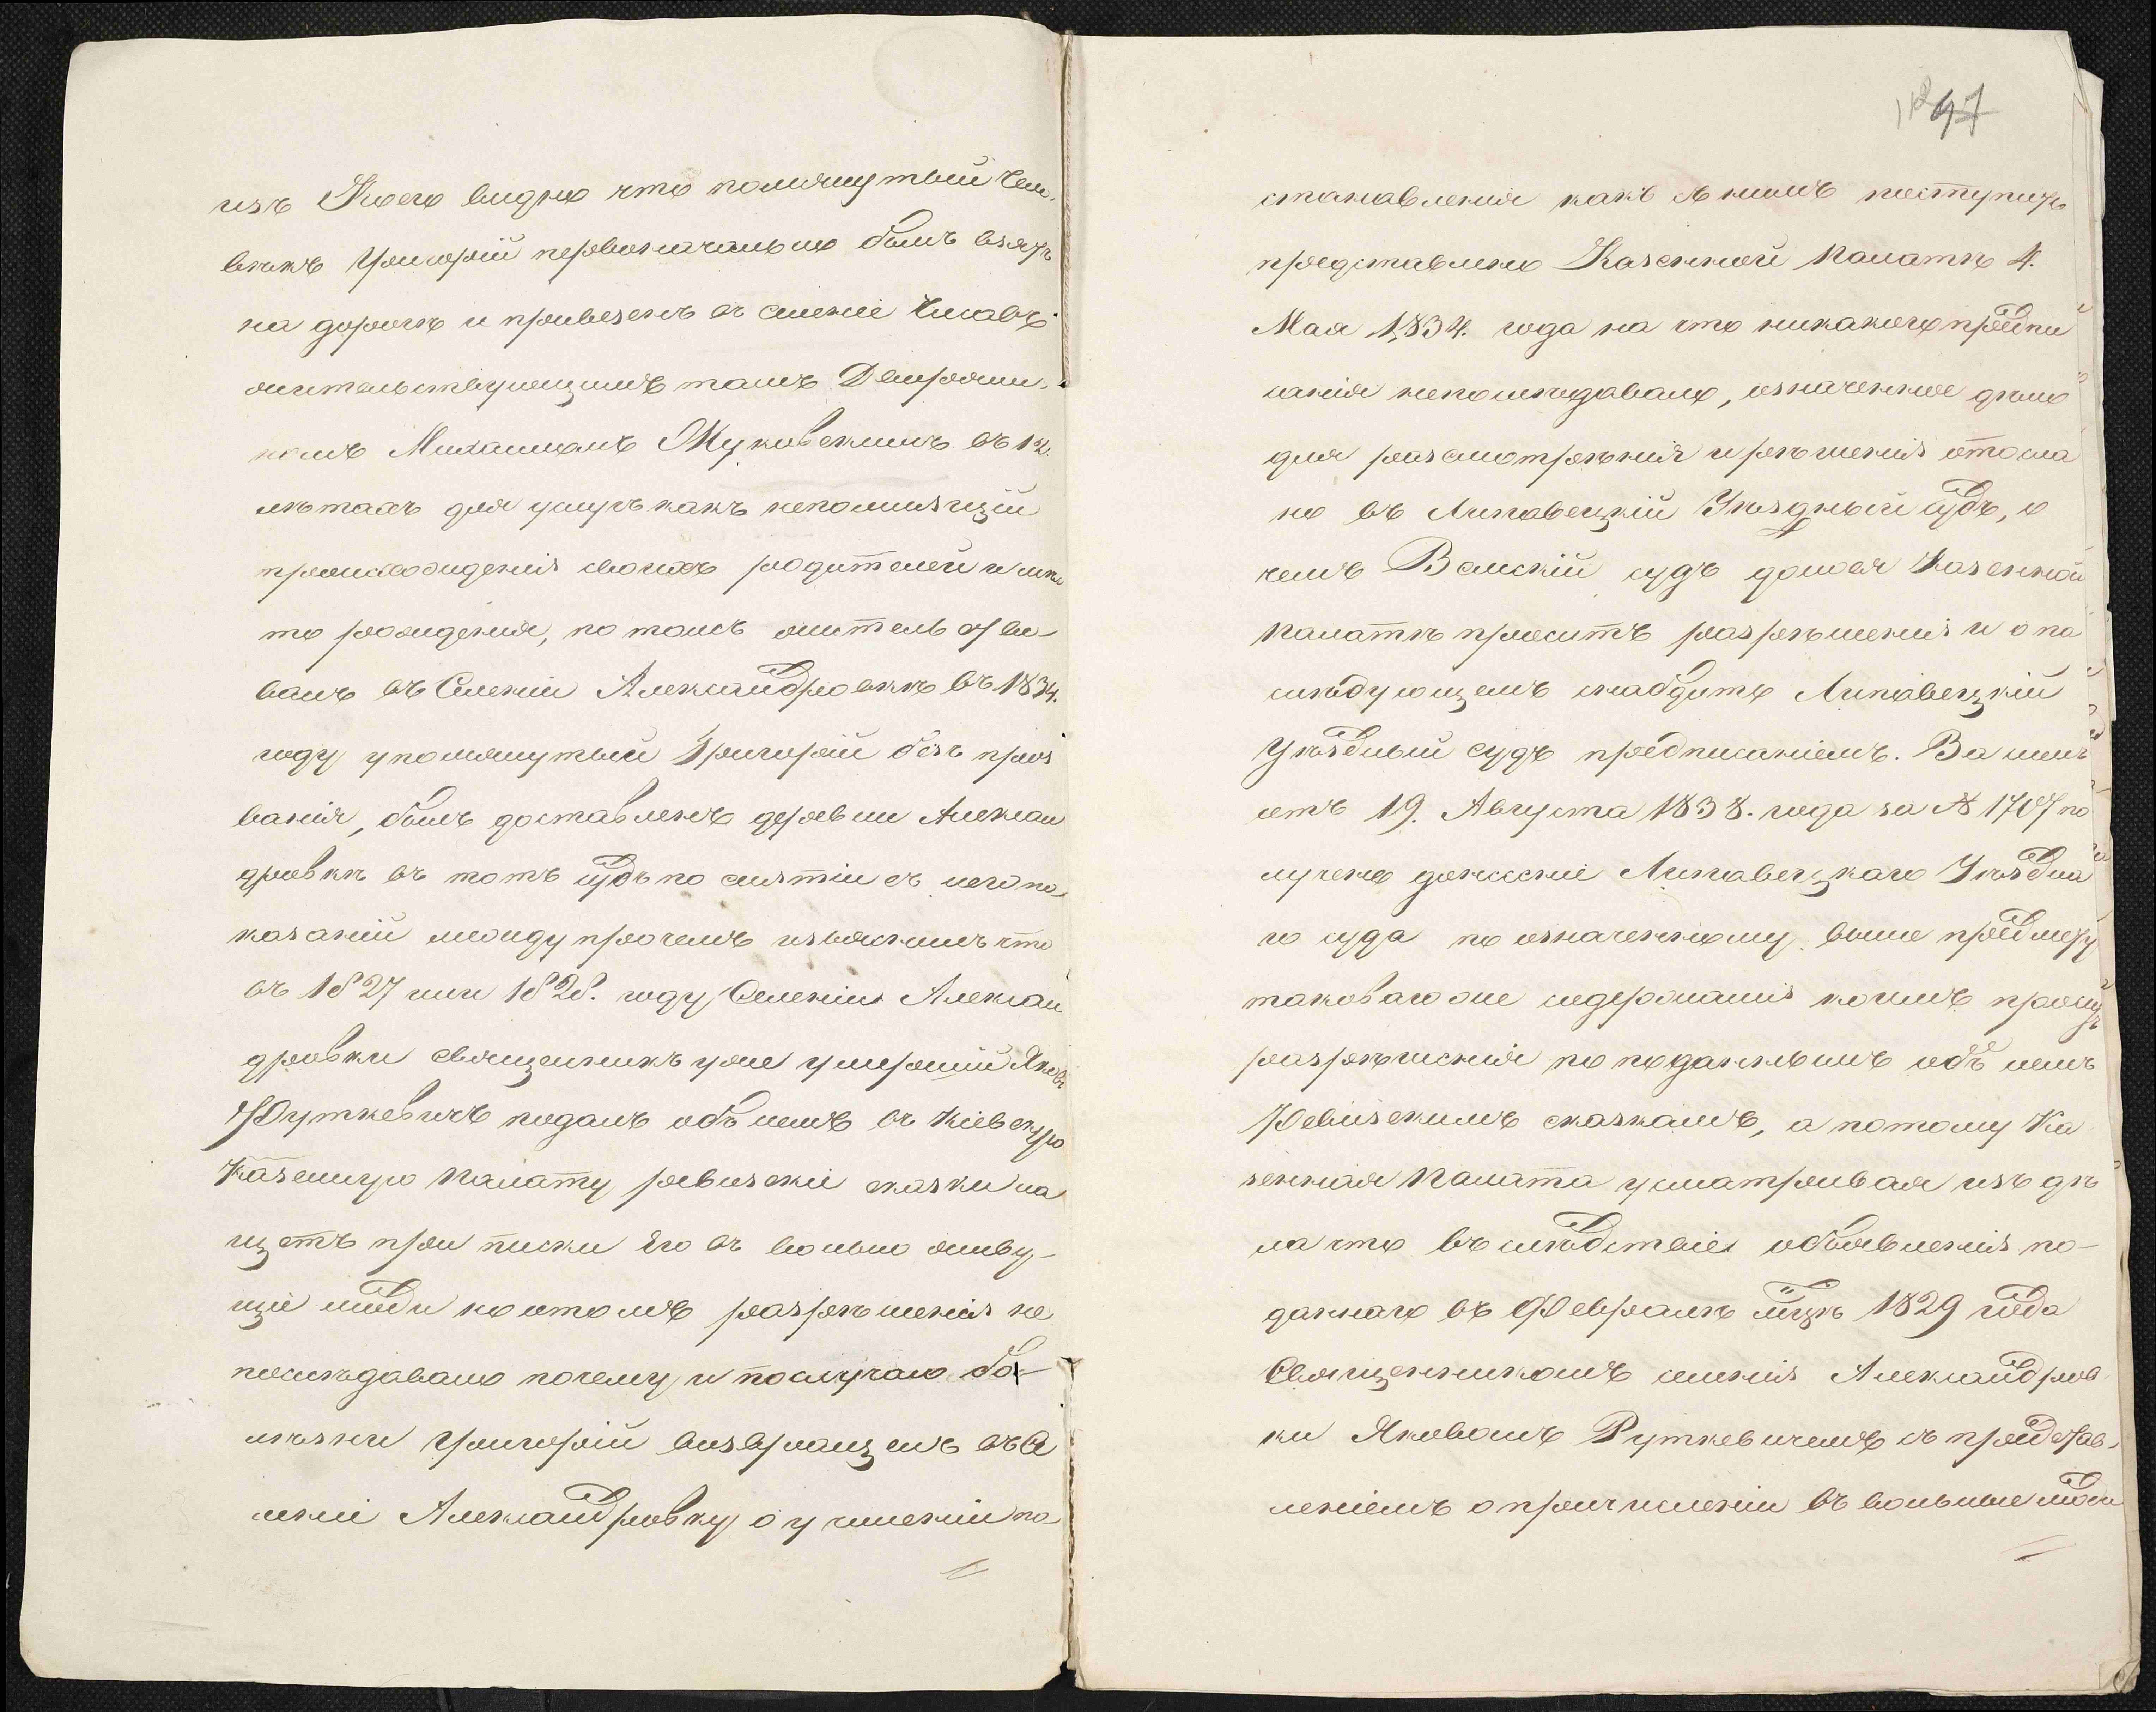 изъ Коего видно что помянутый Чел-
векъ Григорій первоначально былъ взятъ
на дороге и привезенъ въ селеніе
жительствующимъ тамъ Дворяни-
номъ Михаиломъ Жуковскимъ въ 12.
летахъ для услугъ какъ непомнящій
происхожденія своихъ родителей и мес
то рожденія, по томъ житель ство-
валъ въ Селеніи Александровке въ 1834.
году упомянутый Григорій безъ проз
ванія, былъ доставленъ деревни Алексан
дровки въ тотъ судъ по снятіи съ него по
казаній между прочемъ изъяснилъ что
въ 1827 или 1828. году Селенія Алексан
дровки священникъ уже умершій Яковъ
Руткевичъ подалъ объ немъ въ Кіевскую
Казенную Палату ревизскіе сказки на
щетъ при писки Его въ вольно живу-
щіе люди но отомъ разрешенія не
последовало почему и послучаю бо-
лезни Григорій возвращенъ въ Се
леніе Александровку о учиненіи по
97
становленія какъ съ нимъ поступить
представлено Казенной Палате 4.
Мая 1834. года на что никакого предпи
санія непоследовало, означенное дело
для разсмотренія и решенія отосла
но въ Липовецкій Уездный судъ, о
чемъ Земскій судъ донося Казенной
Палате проситъ разрешенія и о по
следующемъ снабдить Липовецкій
Уездный судъ предписаніемъ. За симъ
отъ 19. Августа 1838. года за № 1707 по
лучено донесеніе Липовецкаго Уездна
го суда по означенному выше предмету
таковаго же содержанія коимъ проситъ
разрешенія по поданнымъ объ немъ
Ревизскимъ сказкамъ, а потому Ка
зенная Палата усматривая изъ де
ла что въ следствіе объявленія по-
даннаго въ Феврале м-це 1829 года
Священникомъ селенія Александров
ки Яковомъ Руткевичемъ съ представ-
леніемъ о причисленіи въ вольные люди